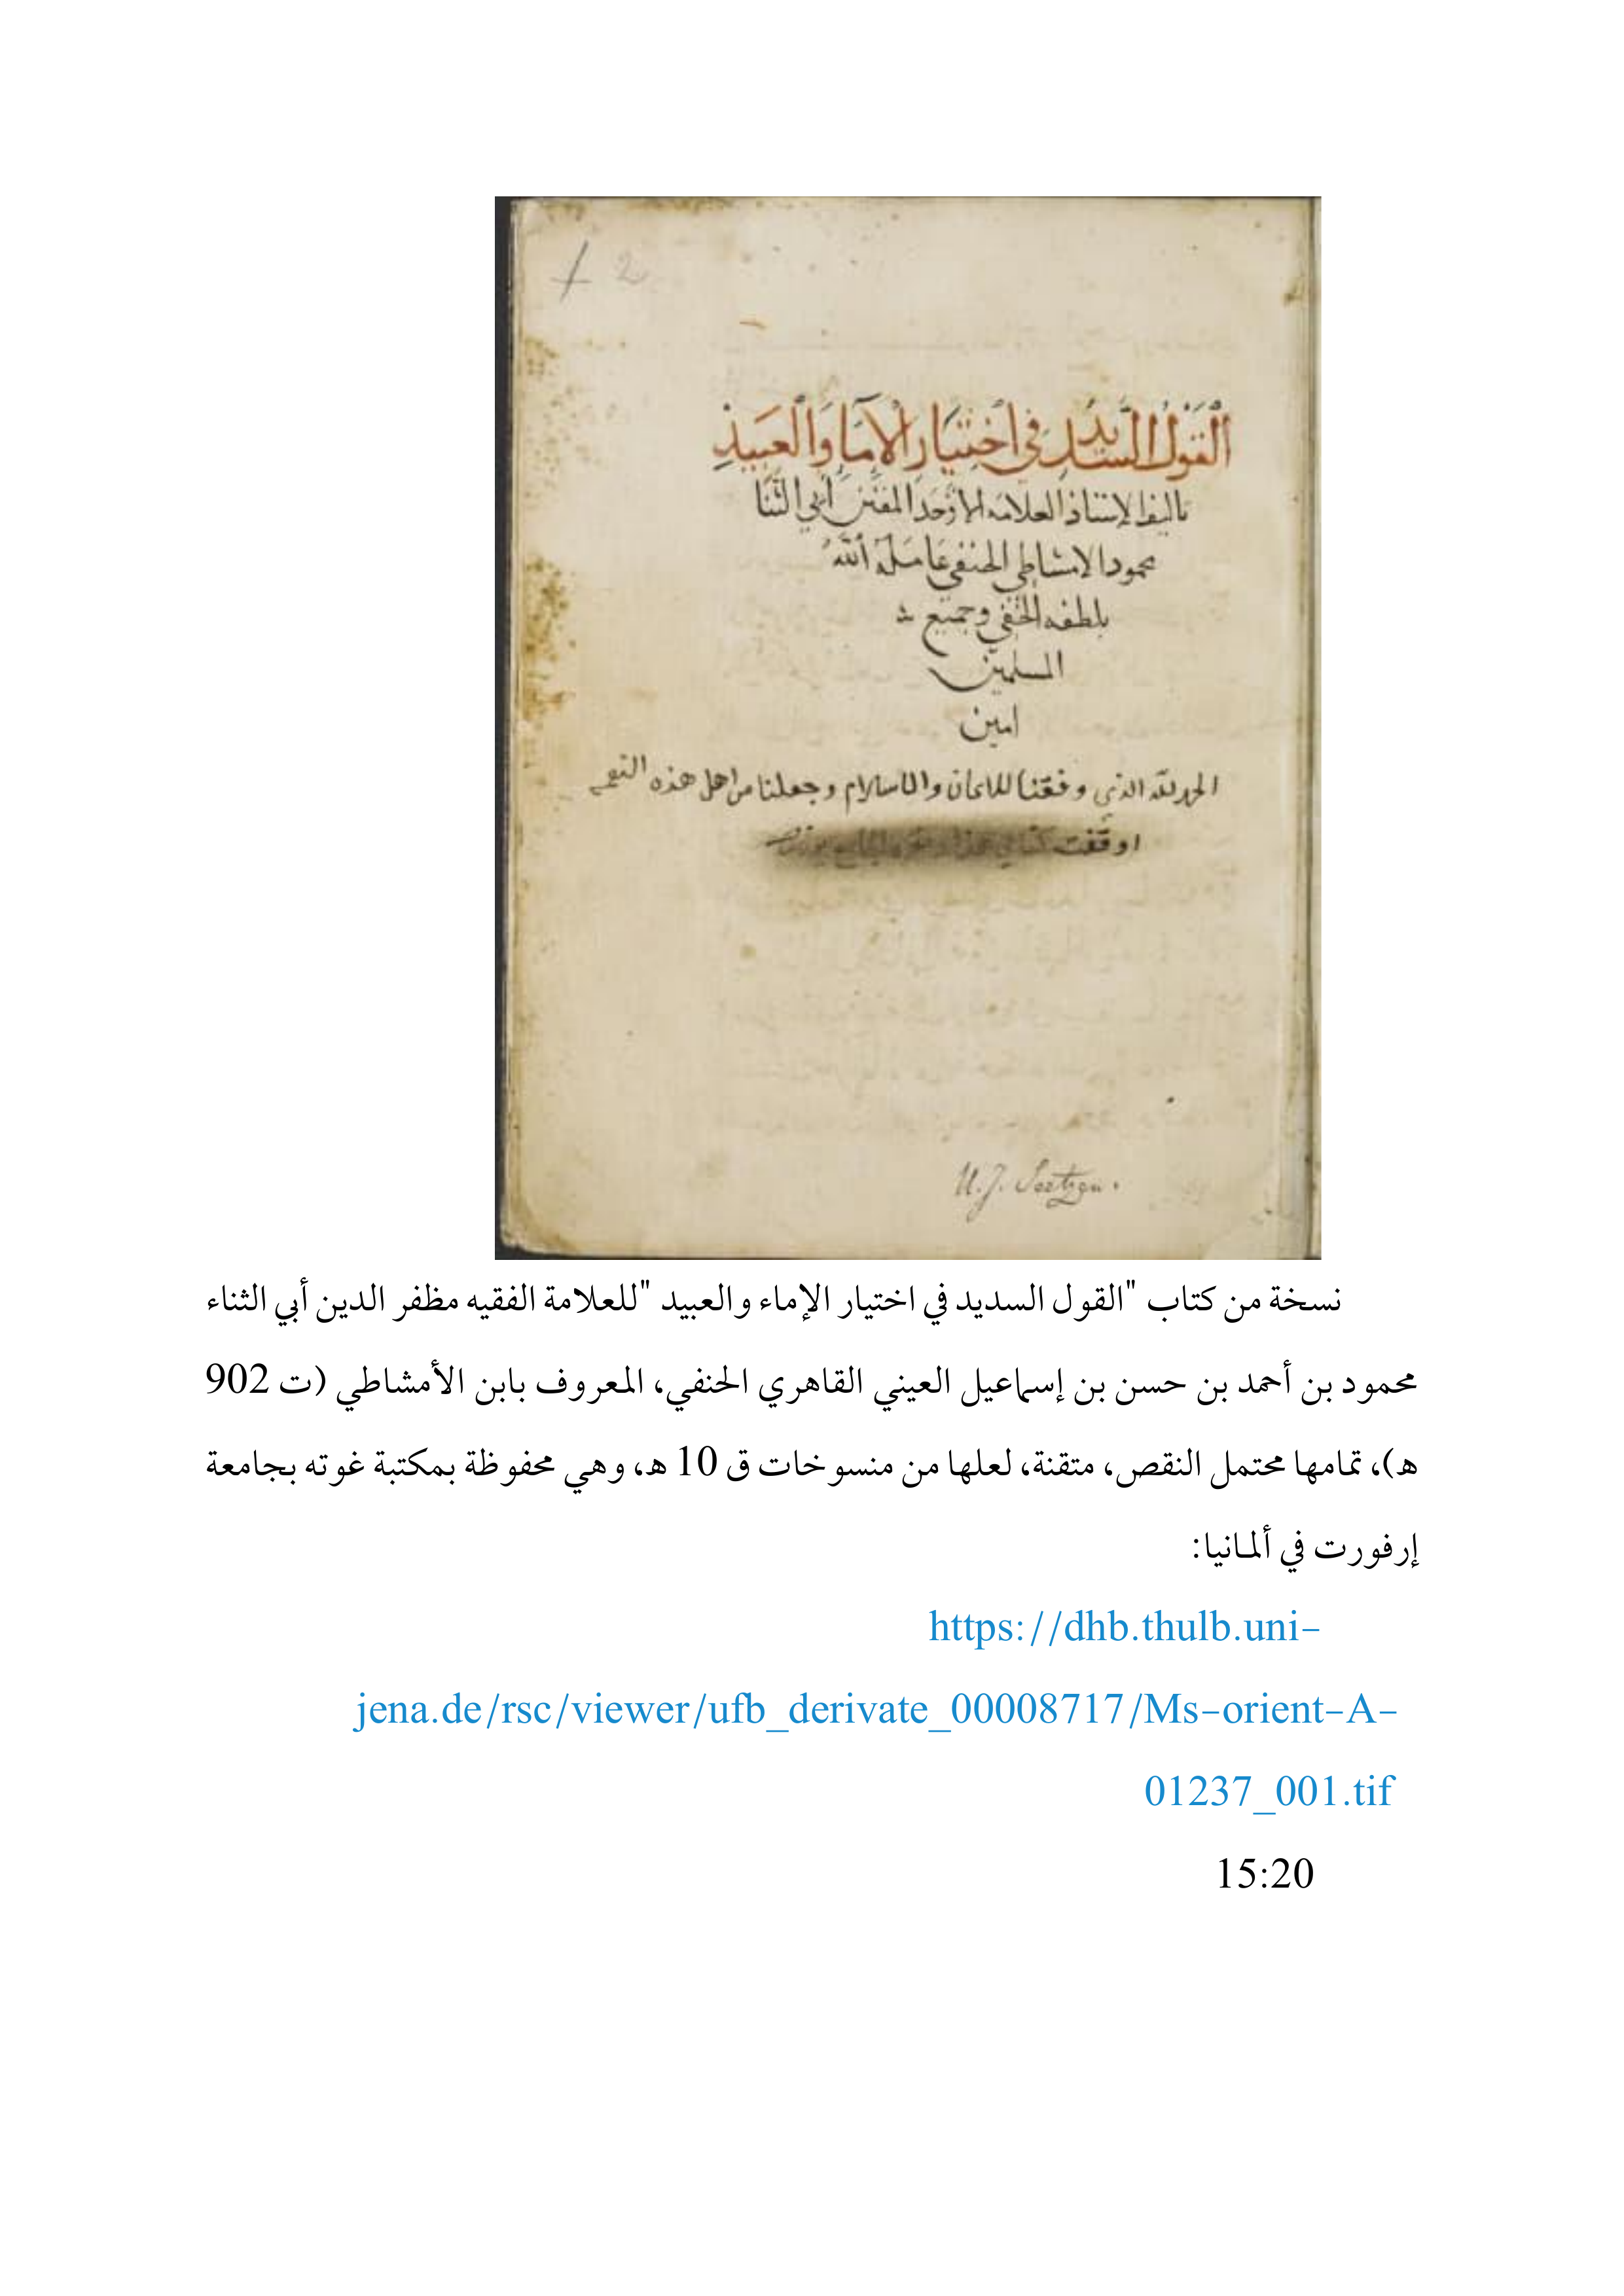 2
القول السديد في اختيار الاما والعبيد
تاليف الاستاذ العلامه الاوحد المفنن أبي الثنا
محمود الامشاطي الحنفي عامله الله
بلطفه الخفي وجميع
المسلمين
امين
الحمد لله الذي وفقنا للايمان والاسلام وجعلنا من اهل هذه النعم
اوقفت
U. J. Seetzen.
نسخة من كتاب "القول السديد في اختيار الإماء والعبيد "للعلامة الفقيه مظفر الدين أبي الثناء
محمود بن أحمد بن حسن بن إسماعيل العيني القاهري الحنفي، المعروف بابن الأمشاطي (ت 902
ه)، تمامها محتمل النقص، متقنة، لعلها من منسوخات ق 10 ه، وهي محفوظة بمكتبة غوته بجامعة
إرفورت في ألمـانيا:
https://dhb.thulb.uni-
jena.de/rsc/viewer/ufb_derivate_00008717/Ms-orient-A-
01237_001.tif
15:20